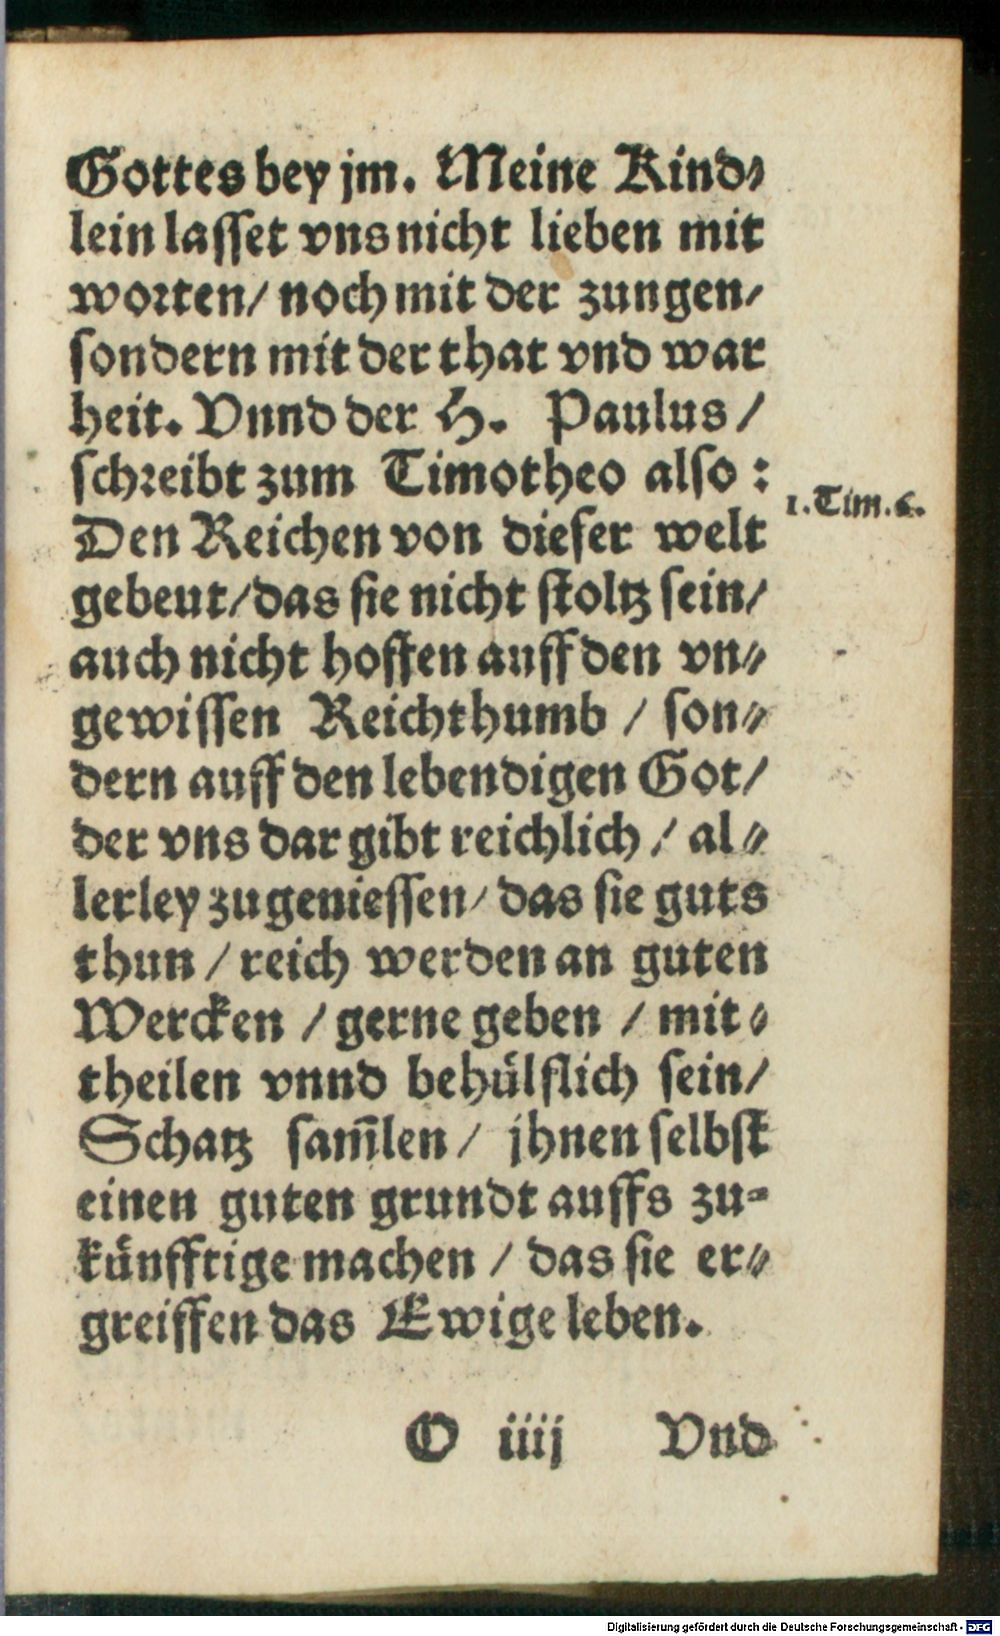 Gottes bey jm. Meine Kind⸗
lein lasset vns nicht lieben mit
worten/ noch mit der zungen/
sondern mit der that vnd war
heit. Vnnd der H. Paulus/
schreibt zum Timotheo also:
1. Tim. 6.
Den Reichen von dieser welt
gebeut/ das sie nicht stoltz sein/
auch nicht hoffen auff den vn⸗
gewissen Reichthumb / son⸗
dern auff den lebendigen Got/
der vns dar gibt reichlich / al⸗
lerley zu geniessen/ das sie guts
thun / reich werden an guten
Wercken / gerne geben / mit⸗
theilen vnnd behülflich sein/
Schatz sam̃len / jhnen selbst
einen guten grundt auffs zu⸗
künfftige machen / das sie er⸗
greiffen das Ewige leben.
O iiij Vnd
Digitalisierung gefördert durch die Deutsche Forschungsgemeinschaft - DFG